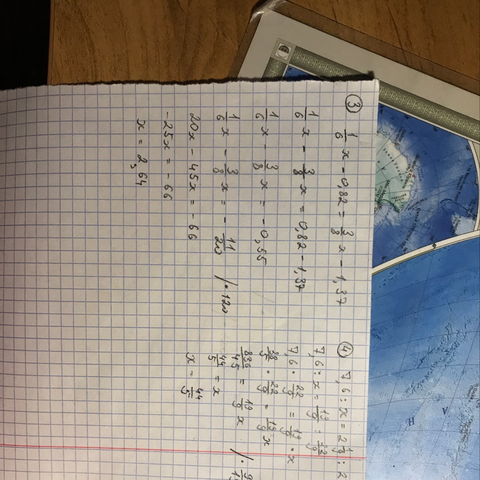 ③ 1/6 x - 0,82 = 3/8 x - 1,37
1/6 x - 3/8 x = 0,82 - 1,37
1/6 x - 3/8 x = - 0,55
1/6 x - 3/8 x = - 11/20 / · 120
20x - 45x = - 66
-25x = - 66
x = 2,64
④ 7,6 : x = 2 1/9 : 2
7,6 : x = 19/9 : 22/9
7,6 · 22/9 = 19/9 · x
38/5 · 22/9 = 19/9 x
836/45 = 19/9 x / · 9/19
44/5 = x
x = 44/5
H
A